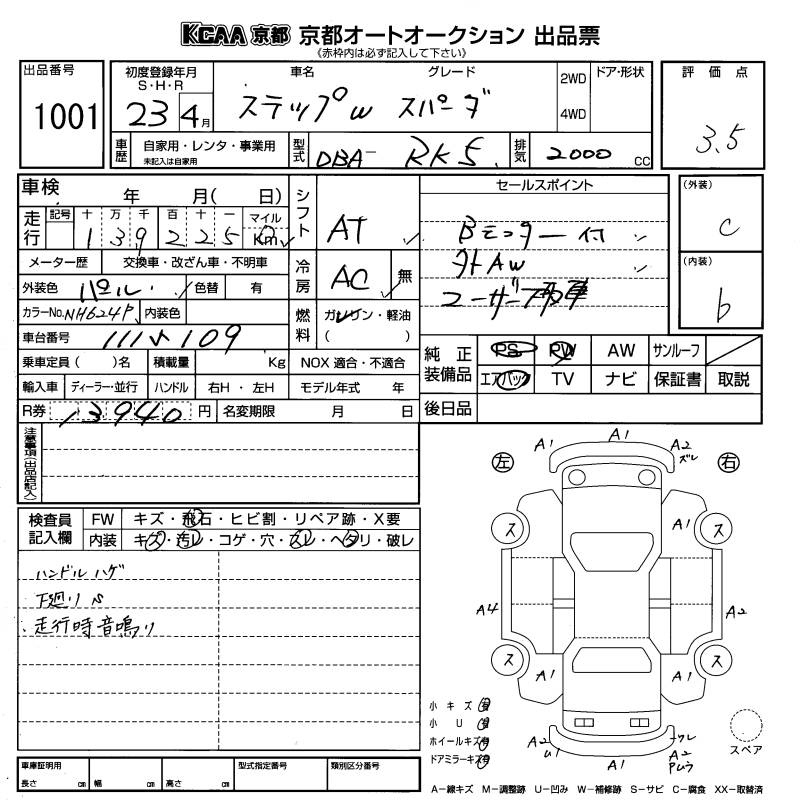 KCAA 京都 京都オートオークション 出品票
《赤枠内は必ず記入して下さい》
出品番号 1001
初度登録年月 S・H・R 23 4月
車名 グレード
ステップW スパーダ
2WD 4WD
ドア・形状
評価点 3.5
車歴 自家用・レンタ・事業用
未記入は自家用
型式 DBA- RK5
排気 2000 cc
車検 年 月( 日)
走行 記号 十 万 千 百 十 一 マイル
1 3 9 2 2 5 Km
メーター歴 交換車・改ざん車・不明車
外装色 パール 色替 有
カラーNo. NH624P 内装色
車台番号 1115109
乗車定員 ( )名 積載量 Kg NOX 適合・不適合
輸入車 ディーラー・並行 ハンドル 右H・左H モデル年式 年
R券 13940 円 名変期限 月 日
シフト AT
冷房 AC 無
燃料 ガソリン・軽油
( )
セールスポイント
Bモニター付
外AW
ユーザー買取車
(外装) C
(内装) b
純正装備品 PS PW AW サンルーフ
エアバック TV ナビ 保証書 取説
後日品
注意事項(出品店記入)
検査員記入欄
FW キズ・飛石・ヒビ割・リペア跡・X要
内装 キズ・汚レ・コゲ・穴・スレ・ヘタリ・破レ
ハンドルハゲ
下廻りS
走行時音鳴り
左 右
A1 A1 A2 ズレ
ス A1 ス
A4 A2
ス A1 A1 ス
A2 U1 A1 A2
小キズ 有
小U 有
ホイールキズ 有
ドアミラーキズ 有
スペア
A−線キズ M−調整跡 U−凹み W−補修跡 S−サビ C−腐食 XX−取替済
車庫証明用 型式指定番号 類別区分番号
長さ cm 幅 cm 高さ cm